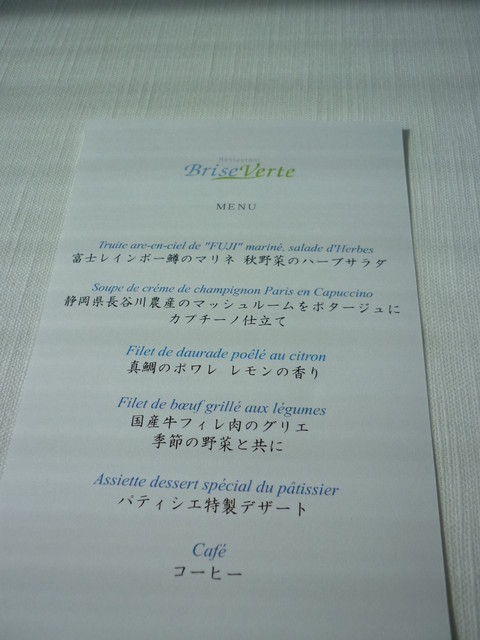 BriseVerte
MENU
Truite are-en-ciel de "FUJI" mariné, salade d'Herbes
富士レインボー鱒のマリネ 秋野菜のハーブサラダ
Soupe de créme de champignon Paris en Capuccino
静岡県長谷川農産のマッシュルームをポタージュに
カプチーノ仕立て
Filet de daurade poêlé au citron
真鯛のポワレ レモンの香り
Filet de bœuf grillé aux légumes
国産牛フィレ肉のグリエ
季節の野菜と共に
Assiette dessert spécial du pâtissier
パティシエ特製デザート
Café
コーヒー